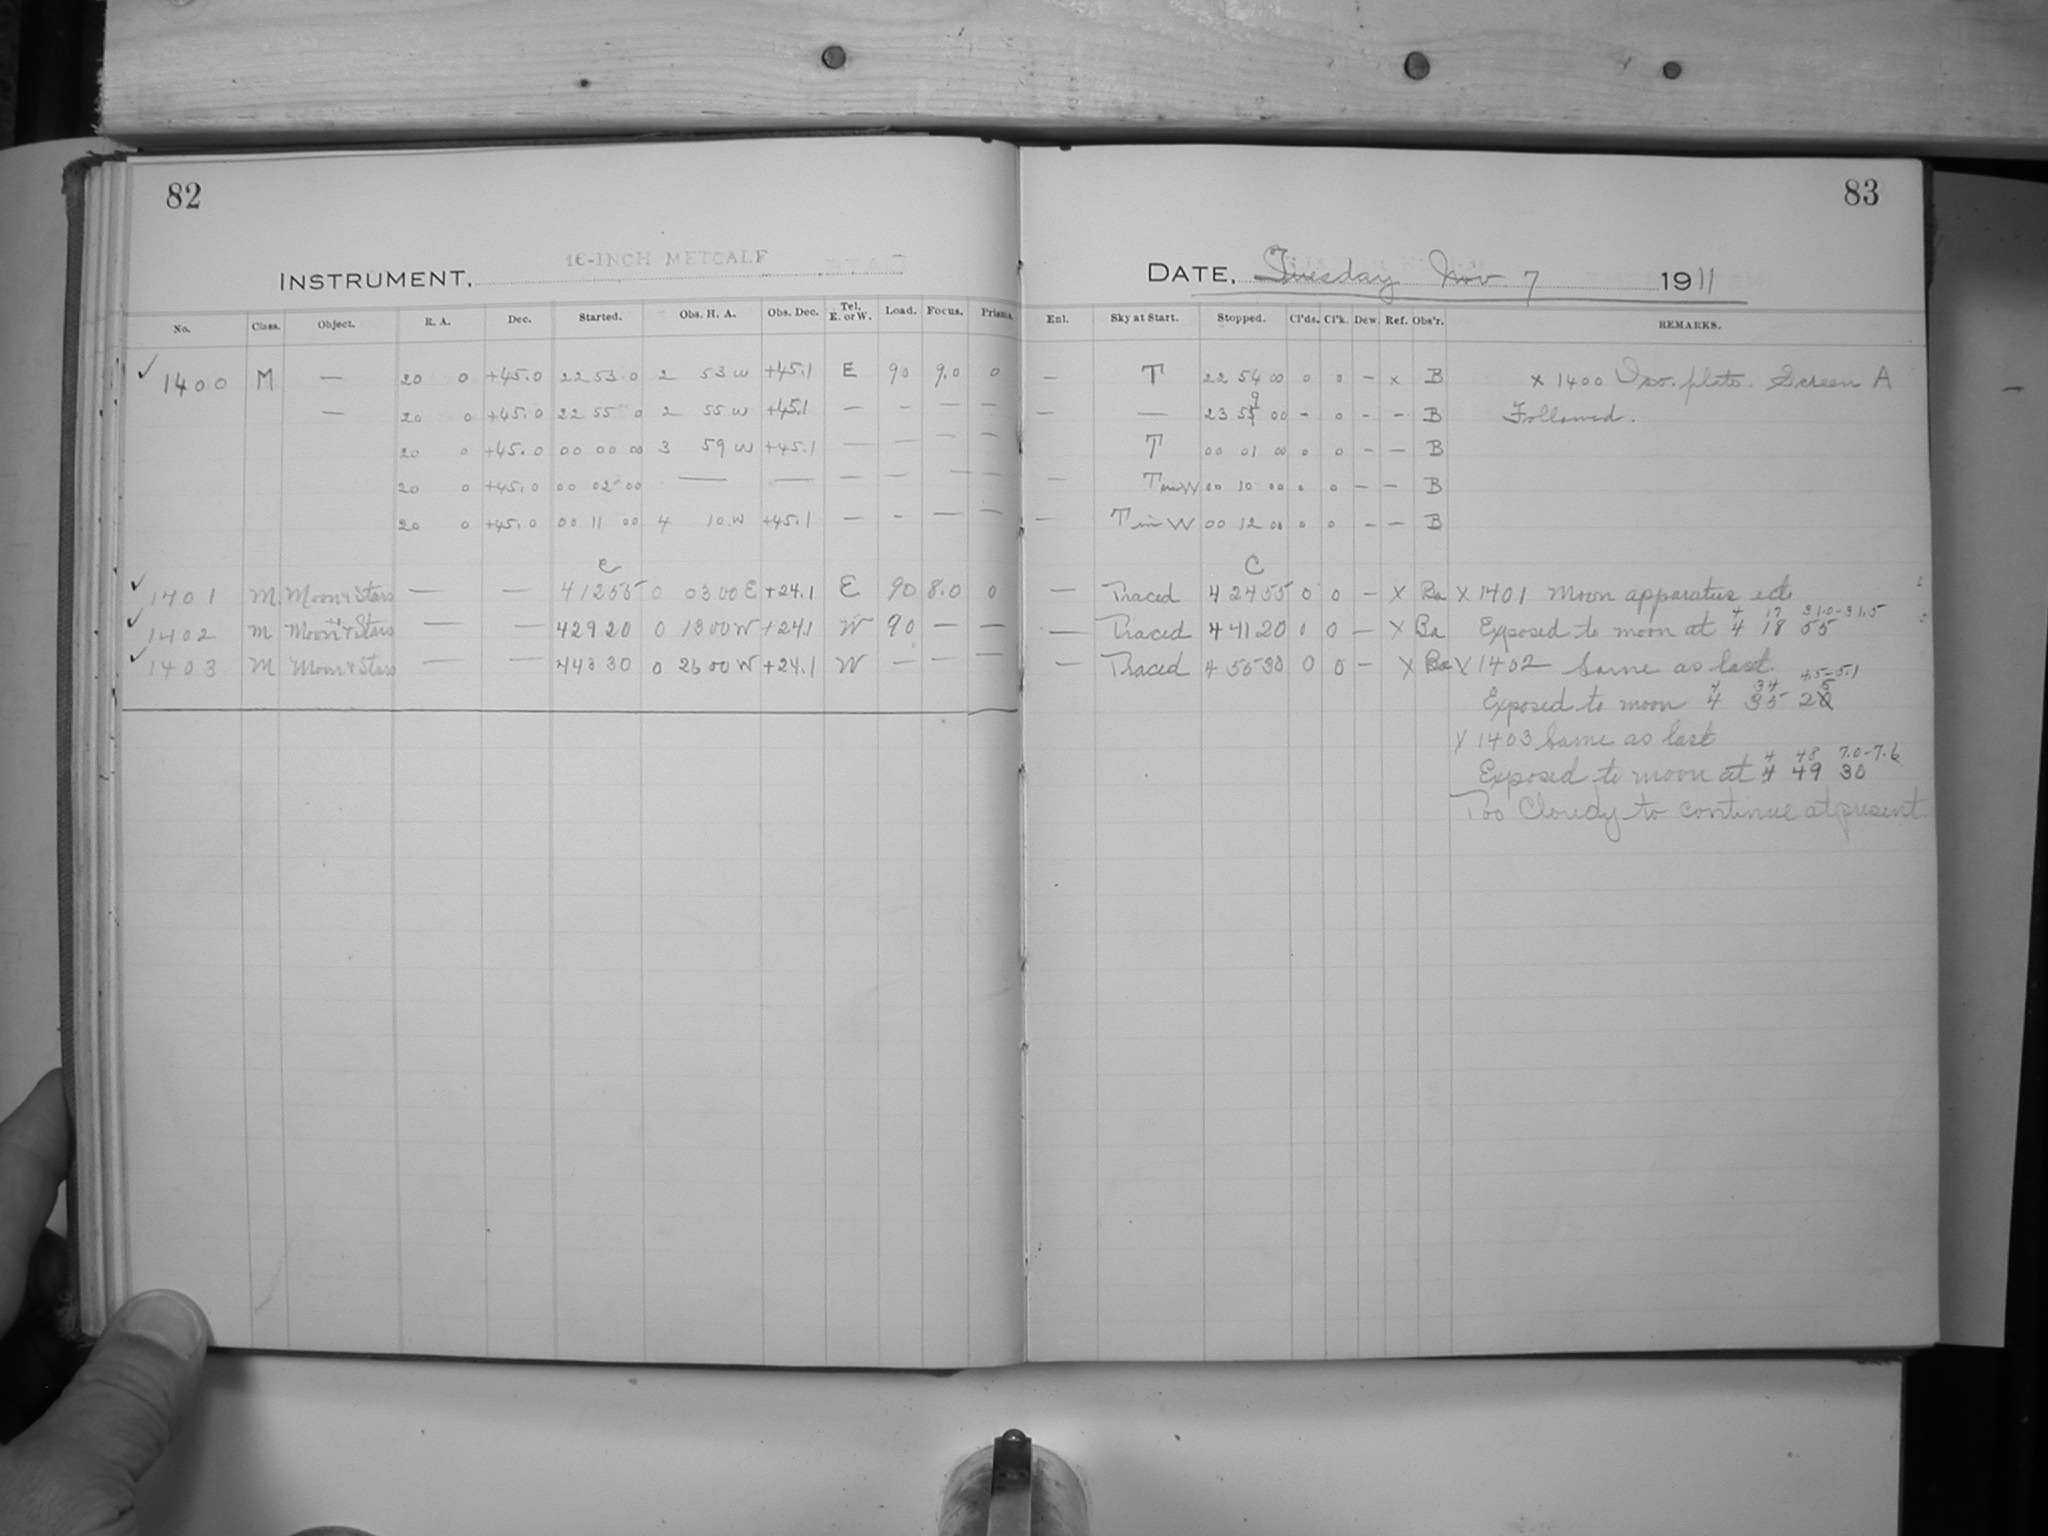 82
INSTRUMENT, 16-INCH METCALF
No. Class. Object. R. A. Dec. Started. Obs. H. A. Obs. Dec. Tel. E. or W. Load. Focus. Prisms.
✓ 1400 M — 20 0 +45.0 22 53 0 2 53 W +45.1 E 90 9.0 0
— 20 0 +45.0 22 55 0 2 55 W +45.1 — - — —
20 0 +45.0 00 00 00 3 59 W +45.1 — — — —
20 0 +45.0 00 02 00 — — — — — —
20 0 +45.0 00 11 00 4 10 W +45.1 — - — —
C
✓ 1401 M Moon & Stars — — 4 12 55 0 03 00 E +24.1 E 90 8.0 0
✓ 1402 M Moon & Stars — — 4 29 20 0 13 00 W +24.1 W 90 — —
✓ 1403 M Moon & Stars — — 4 43 30 0 26 00 W +24.1 W — — —
83
DATE, Tuesday Nov 7 1911
Enl. Sky at Start. Stopped. Cl'ds. Cl'k. Dew. Ref. Obs'r. REMARKS.
— T 22 54 00 0 0 - x B x 1400 Iso. plate. Screen A
— — 23 59 00 - 0 - - B Followed.
T 00 01 00 0 0 - - B
— T in W 00 10 00 0 0 - - B
— T in W 00 12 00 0 0 - - B
C
— Traced 4 24 55 0 0 - X Ba X 1401 Moon apparatus ect.
4 17 31.0-31.5
— Traced 4 41 20 0 0 — X Ba Exposed to moon at 4 18 55
— Traced 4 55 30 0 0 - X Ba X 1402 Same as last.
4 34 4.5-5.1
Exposed to moon 4 35 25
X 1403 Same as last
4 48 7.0-7.6
Exposed to moon at 4 49 30
Too Cloudy to continue at present